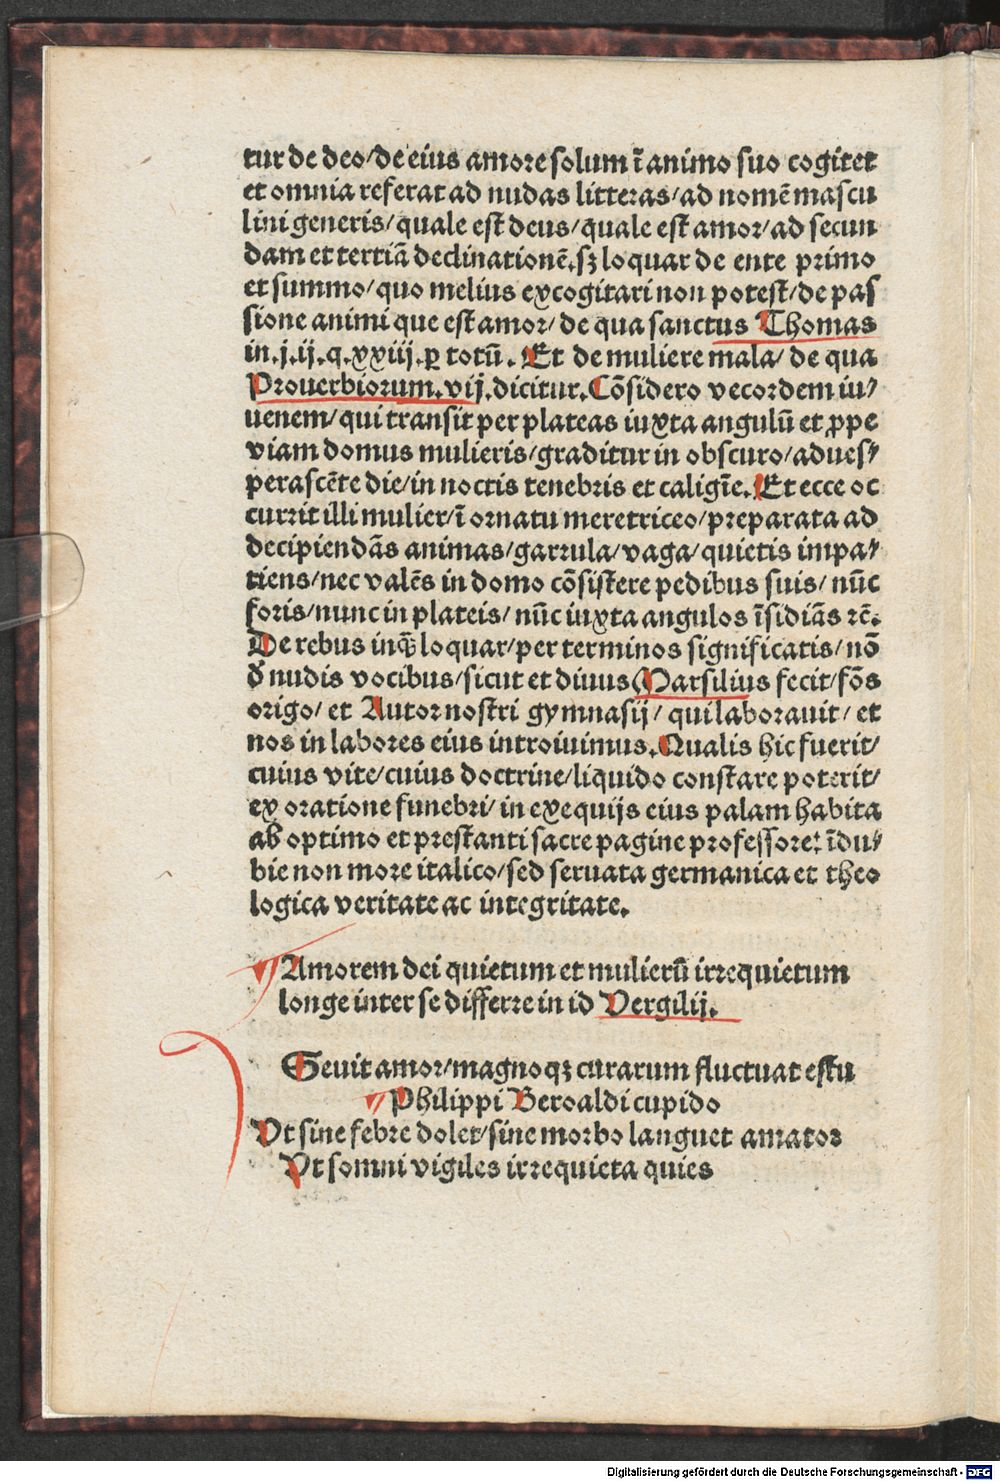 tur de deo/de eius amore solum ī animo suo cogitet
et omnia referat ad nudas litteras/ad nomē mascu
lini generis/quale est deus/quale est amor/ad secun
dam et tertiā declinationē.sꝫ loquar de ente primo
et summo/quo melius excogitari non potest/de pas
sione animi que est amor/de qua sanctus Thomas
in.j.ij.q.xxiij.ꝑ totū. Et de muliere mala/de qua
Prouerbiorum.vij.dicitur.Cōsidero vecordem iu/
uenem/qui transit per plateas iuxta angulū et ꝓpe
viam domus mulieris/graditur in obscuro/adues/
perascēte die/in noctis tenebris et caligīe.Et ecce oc
currit illi mulier/ī ornatu meretriceo/preparata ad
decipiendās animas/garrula/vaga/quietis impa/
tiens/nec valēs in domo cōsistere pedibus suis/nūc
foris/nunc in plateis/nūc iuxta angulos īsidiās ꝛc̄.
De rebus inqͣ loquar/per terminos significatis/nō
ð nudis vocibus/sicut et diuus Marsilius fecit/fōs
origo/et Autor nostri gymnasij/qui laborauit/et
nos in labores eius introiuimus.Qualis hic fuerit/
cuius vite/cuius doctrine/liquido constare poterit/
ex oratione funebri/in exequijs eius palam habita
ab optimo et prestanti sacre pagine professore: īdu/
bie non more italico/sed seruata germanica et theo
logica veritate ac integritate.
¶ Amorem dei quietum et mulierū irrequietum
longe inter se differre in id Vergilij.
Seuit amor/magnoqꝫ curarum fluctuat estu
¶ Philippi Beroaldi cupido
Vt sine febre dolet/sine morbo languet amator
Vt somni vigiles irrequieta quies
Digitalisierung gefördert durch die Deutsche Forschungsgemeinschaft - DFG